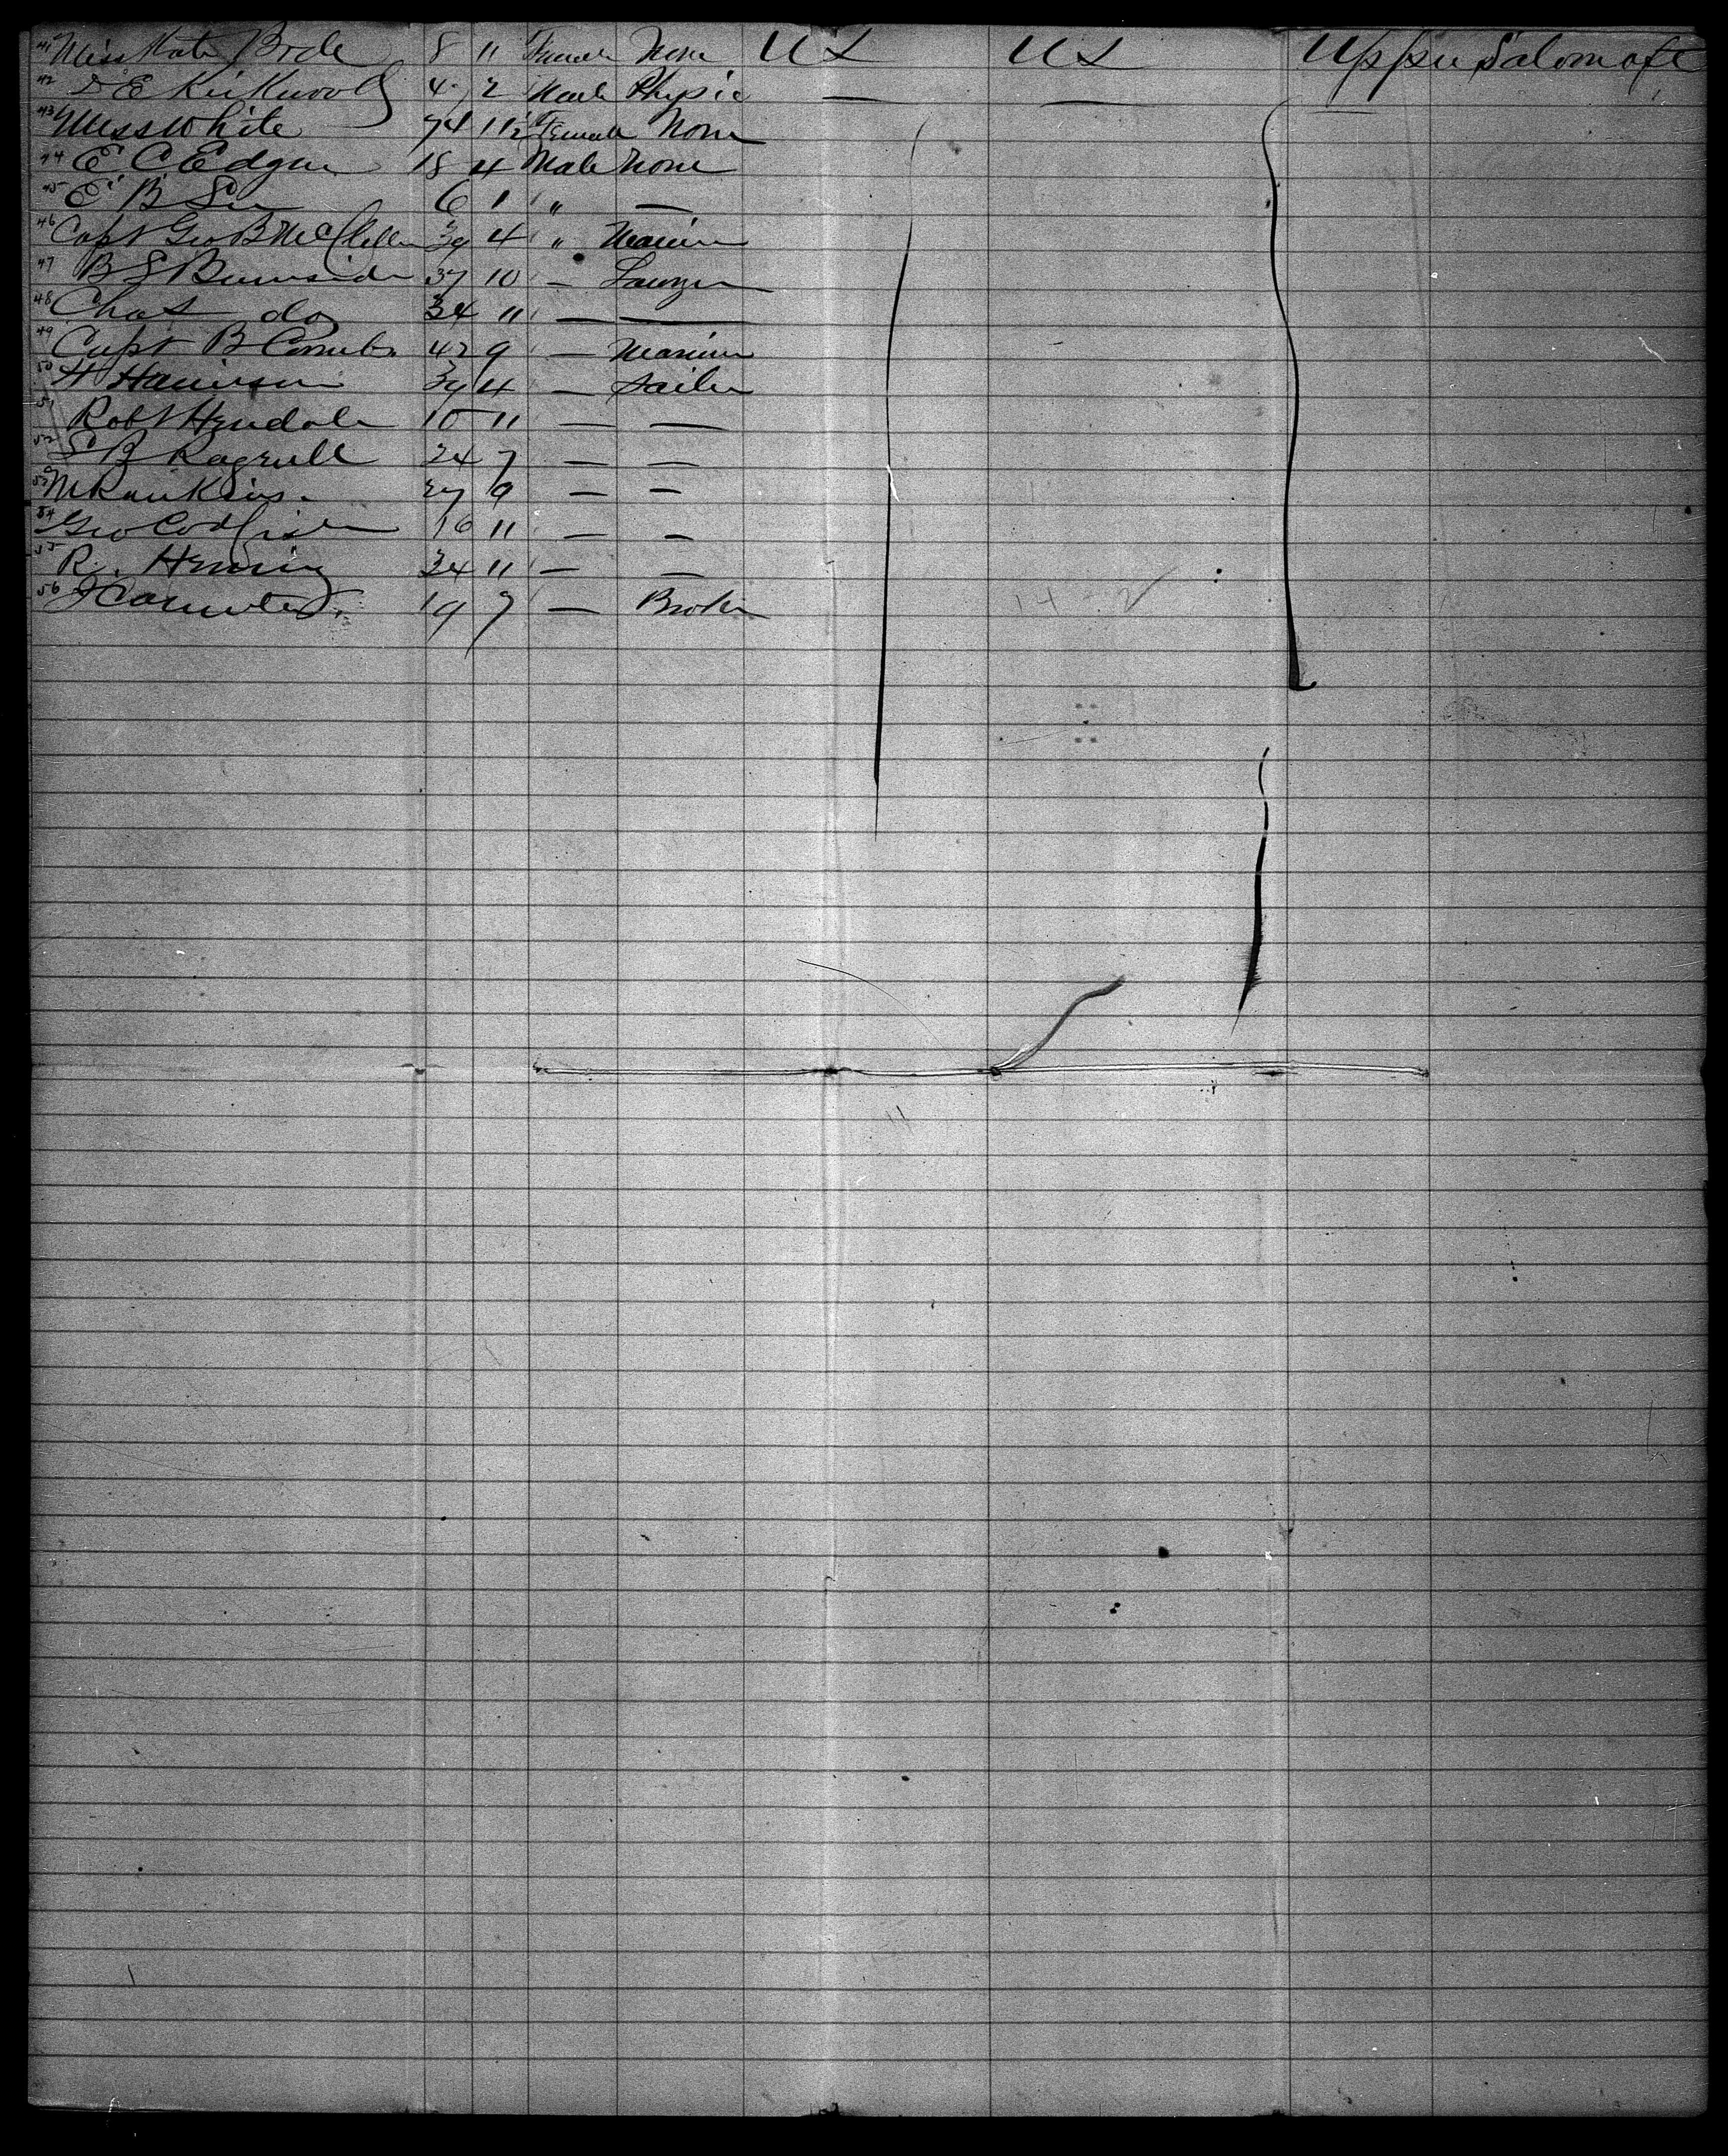 41 Miss Kate Bode 8 11 Female None US US Upper Saloon aft
42 D E Kirkwood 4 2 Male Physic — —
43 Miss White 74 11 Female None
44 E C Edgar 18 4 Male None
45 E B 6 1 " —
46 Capt Geo B McClellan 39 4 " Marine
47 B S Burnside 37 10 — Lawyer
48 Chas do 34 11 — —
49 Capt B Comb 42 9 — Marine
50 H Harrison 39 4 — Sailor
51 Robt 15 11 — —
52 S B 24 7 — —
53 M Rankins 27 9 — —
54 Geo Codfish 16 11 — —
55 R. 34 11 — —
56 19 7 — Broker